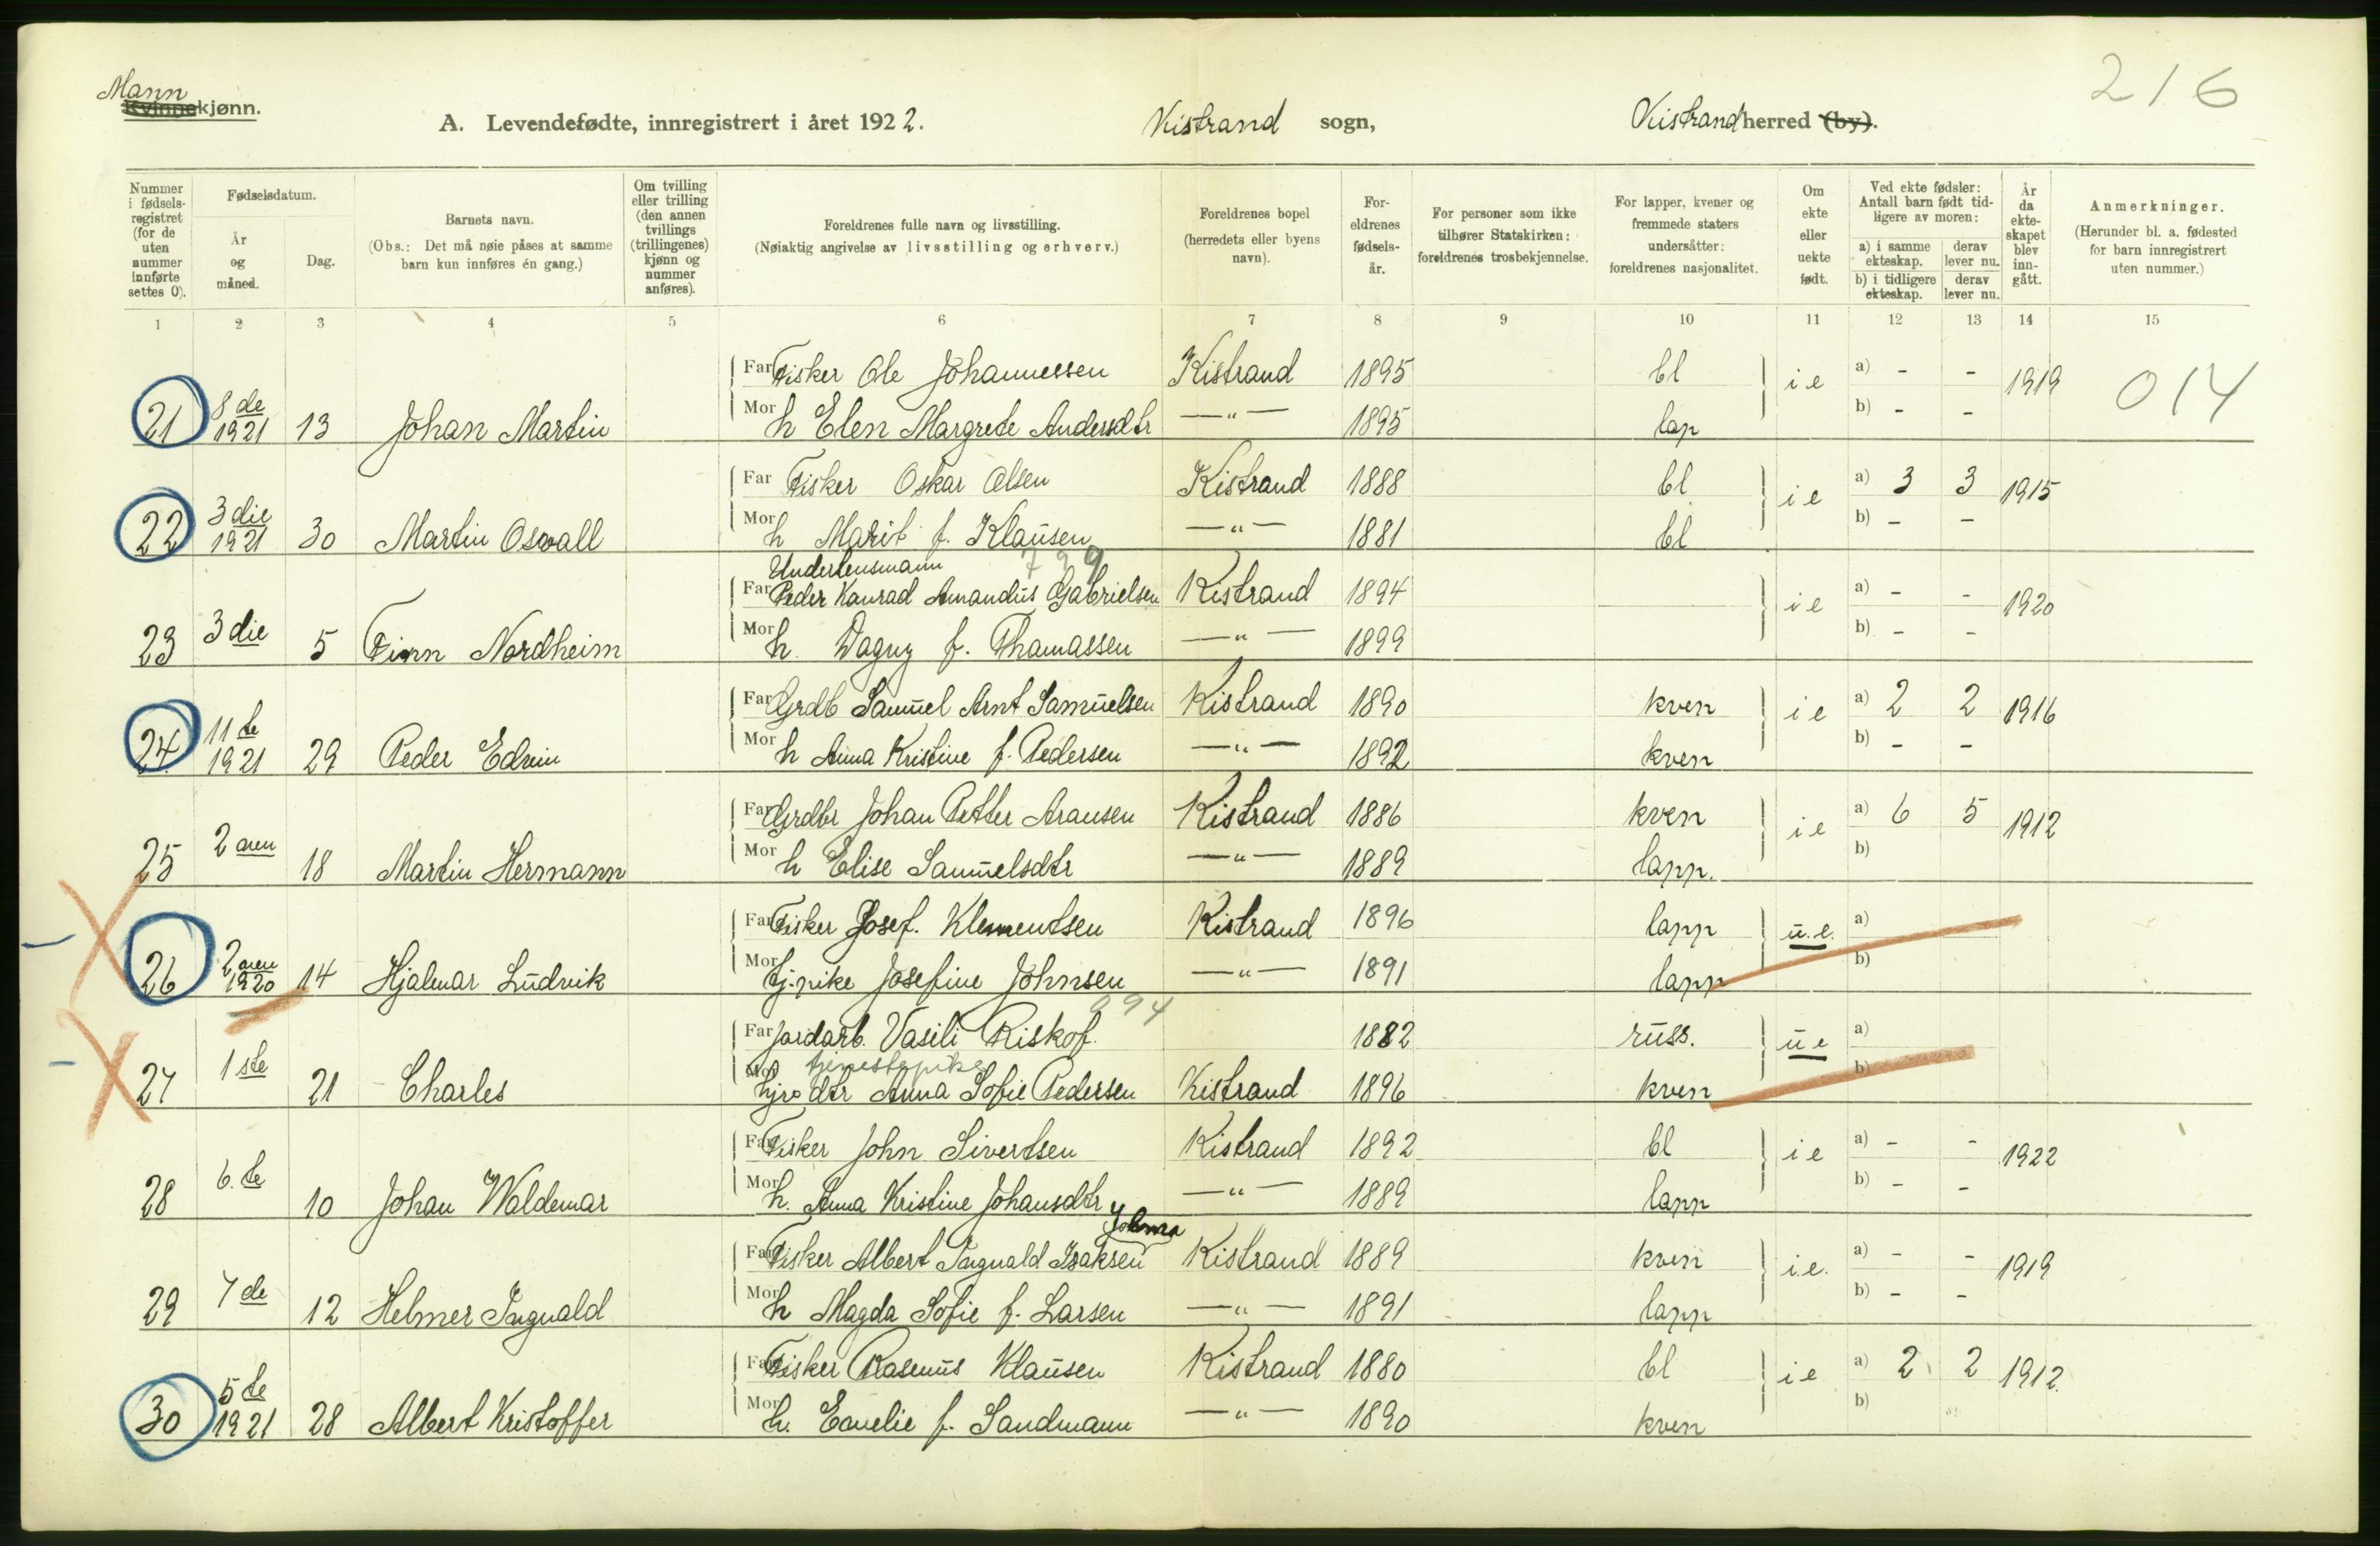 216
Mann
Kvinnekjønn.
A. Levendefødte, innregistrert i året 1922. Kistrand sogn, Kistrand herred (by).
Nummer i fødselsregistret (for de uten nummer innførte settes 0).
Fødselsdatum.
År og måned.
Dag.
Barnets navn.
(Obs.: Det må nøie påses at samme barn kun innføres én gang.)
Om tvilling eller trilling (den annen tvillings (trillingenes) kjønn og nummer anføres).
Foreldrenes fulle navn og livsstilling.
(Nøiaktig angivelse av livsstilling og erhverv.)
Foreldrenes bopel (herredets eller byens navn).
Foreldrenes fødselsår.
For personer som ikke tilhører Statskirken: foreldrenes trosbekjennelse.
For lapper, kvener og fremmede staters undersåtter: foreldrenes nasjonalitet.
Om ekte eller uekte født.
Ved ekte fødsler: Antall barn født tidligere av moren:
a) i samme ekteskap. derav lever nu.
b) i tidligere ekteskap. derav lever nu.
År da ekteskapet blev inngått.
Anmerkninger.
(Herunder bl. a. fødested for barn innregistrert uten nummer.)
1 2 3 4 5 6 7 8 9 10 11 12 13 14 15
Far Fisker Ole Johannessen Kistrand 1895 bl i e a) - - 1919 014
21 8 de 1921 13 Johan Martin Mor h Elen Margrete Andersdtr —"— 1895 lap b) - -
Far Fisker Oskar Olsen Kistrand 1888 bl i e a) 3 3 1915
22 3 die 1921 30 Martin Osvall Mor h Marit f. Klausen —"— 1881 bl b) - -
Underlensmann 799
Far Peder Konrad Amandus Gabrielsen Kistrand 1894 i e a) - - 1920
23 3 die 5 Finn Nordheim Mor h. Dagny f. Thomassen —"— 1899 b) - -
Far Grdb Samuel Arnt Samuelsen Kistrand 1890 kven i e a) 2 2 1916
24 11 te 1921 29 Peder Edvin Mor h Anna Kristine f. Pedersen —"— 1892 kven b) - -
Far Grdbr Johan Petter Aransen Kistrand 1886 kven i e a) 6 5 1912
25 2 aen 18 Martin Hermann Mor h Elise Samuelsdtr —"— 1889 lapp. b)
Far Fisker Josef. Klementsen Kistrand 1896 lapp u.e. a)
26 2 aen 1920 14 Hjalmar Ludvik Mor tj.pike Josefine Johnsen —"— 1891 lapp b)
994
Far jordarb. Vasili Riskof. 1882 russ. u e a)
tjenestepike
27 1 ste 21 Charles Mor dtr Anna Sofie Pedersen Kistrand 1896 kven b)
Far Fisker John Sivertsen Kistrand 1892 bl i e a) - - 1922
28 6. te 10 Johan Waldemar Mor h. Anna Kristine Johansdtr —"— 1889 lapp b) - -
Far Fisker Albert Ingvald Isaksen Kistrand 1889 kven i.e. a) - - 1919
29 7 de 12 Helmer Ingvald Mor h Magda Sofie f. Larsen —"— 1891 lapp b) - -
Far Fisker Rasmus Klausen Kistrand 1880 bl i e a) 2 2 1912.
30 5 te 1921 28 Albert Kristoffer Mor h. Emelie f. Sandmann —"— 1890 kven b)